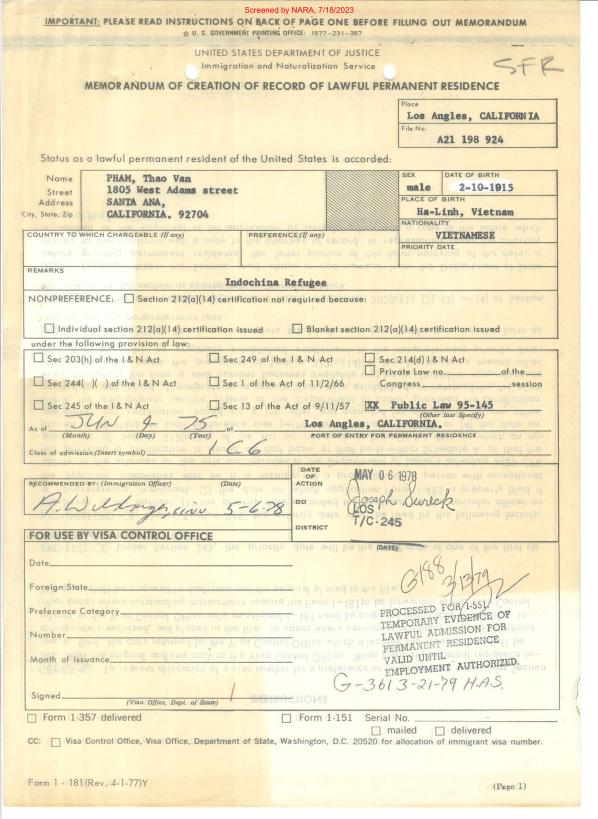 Screened by NARA, 7/18/2023
IMPORTANT: PLEASE READ INSTRUCTIONS ON BACK OF PAGE ONE BEFORE FILLING OUT MEMORANDUM
☆ U. S. GOVERNMENT PRINTING OFFICE: 1977-231-387
UNITED STATES DEPARTMENT OF JUSTICE
Immigration and Naturalization Service
SFR
MEMORANDUM OF CREATION OF RECORD OF LAWFUL PERMANENT RESIDENCE
Place
Los Angles, CALIFORNIA
File No.
A21 198 924
Status as a lawful permanent resident of the United States is accorded:
Name PHAM, Thao Van
Street 1805 West Adams street
Address SANTA ANA,
City, State, Zip CALIFORNIA. 92704
SEX male
DATE OF BIRTH 2-10-1915
PLACE OF BIRTH
Ha-Linh, Vietnam
NATIONALITY
VIETNAMESE
COUNTRY TO WHICH CHARGEABLE (If any)
PREFERENCE (If any)
PRIORITY DATE
REMARKS
Indochina Refugee
NONPREFERENCE: ☐ Section 212(a)(14) certification not required because:
☐ Individual section 212(a)(14) certification issued ☐ Blanket section 212(a)(14) certification issued
under the following provision of law:
☐ Sec 203(h) of the I & N Act ☐ Sec 249 of the I & N Act ☐ Sec 214(d) I & N Act
☐ Private Law no. of the
☐ Sec 244( )( ) of the I & N Act ☐ Sec 1 of the Act of 11/2/66 Congress session
☐ Sec 245 of the I & N Act ☐ Sec 13 of the Act of 9/11/57 XX Public Law 95-145
(Other law Specify)
As of JUN 4 - 75 at Los Angles, CALIFORNIA.
(Month) (Day) (Year) PORT OF ENTRY FOR PERMANENT RESIDENCE
Class of admission (Insert symbol) IC6
RECOMMENDED BY: (Immigration Officer) (Date)
5-6-78
DATE OF ACTION MAY 06 1978
DD Joseph Sureck
LOS
DISTRICT T/C-245
FOR USE BY VISA CONTROL OFFICE
(DATE)
Date
Foreign State
Preference Category
Number
Month of Issuance
Signed
(Visa Office, Dept. of State)
G188 3/13/79
PROCESSED FOR I-551.
TEMPORARY EVIDENCE OF
LAWFUL ADMISSION FOR
PERMANENT RESIDENCE
VALID UNTIL
EMPLOYMENT AUTHORIZED.
G-361 3-21-79 H.A.S.
☐ Form 1-357 delivered ☐ Form 1-151 Serial No.
☐ mailed ☐ delivered
CC: ☐ Visa Control Office, Visa Office, Department of State, Washington, D.C. 20520 for allocation of immigrant visa number.
Form 1 - 181 (Rev. 4-1-77)Y
(Page 1)